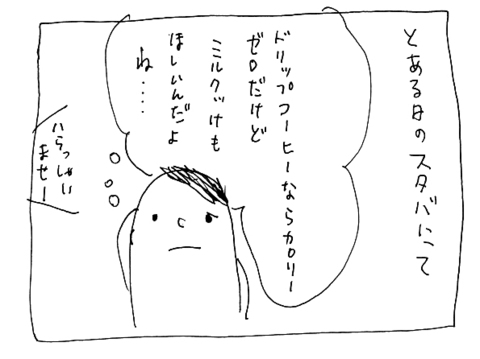 とある日のスタバにて
ドリップコーヒーならカロリー
ゼロだけど
ミルクっけも
ほしいんだよ
ね‥‥
いらっしゃい
ませー